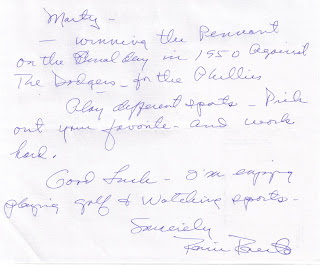 Marty -
- winning the Pennant
on the final day in 1950 against
The Dodgers - for the Phillies
Play different sports - Pick
out your favorite - and work
hard.
Good Luck - I'm enjoying
playing golf & watching sports -
Sincerely
Robin Roberts